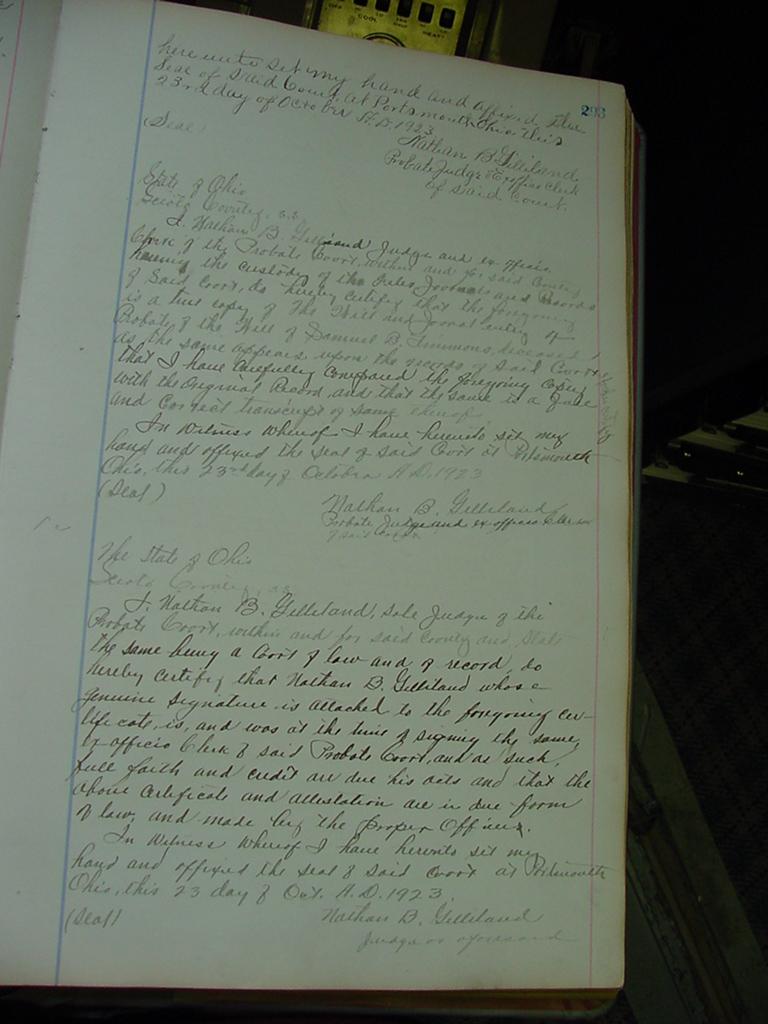 293
hereunto set my hand and affixed the
Seal of said Court, at Portsmouth Ohio this
23rd day of October A.D. 1923
(Seal)
Nathan B. Gilliland
Probate Judge & Ex officio Clerk
of said Court.
State of Ohio
Scioto County, s.s.
I, Nathan B. Gilliland Judge and ex-officio
Clerk of the Probate Court, within and for said County
having the custody of the Files, Journals and Records
of Said Court, do hereby Certify that the foregoing
is a true copy of The Will and Journal entry of
Probate of the Will of Samuel B. Timmons, deceased,
as the same appears upon the records of said Court
that I have carefully compared the foregoing copy
with the Original Record, and that the same is a full
and Correct transcript of same thereof.
In Witness Whereof I have hereunto set my
hand and affixed the seal of said Court at Portsmouth
Ohio, this 23rd day of October A.D. 1923
(Seal)
Nathan B. Gilliland
Probate Judge and ex-officio Clerk
of said Court
The State of Ohio
Scioto County, s.s.
I, Nathan B. Gilliland, sole Judge of the
Probate Court, within and for said County and State
the same being a Court of law and of record, do
hereby certify that Nathan B. Gilliland whose
genuine signature is attached to the foregoing cer-
tificate, is, and was at the time of signing the same,
Ex-officio Clerk of said Probate Court, and as such,
full faith and credit are due his acts and that the
above certificate and attestation are in due form
of law, and made by the Proper Officer.
In Witness Whereof I have hereunto set my
hand and affixed the seal of said Court at Portsmouth
Ohio, this 23 day of Oct. A.D. 1923.
(Seal)
Nathan B. Gilliland
Judge as aforesaid